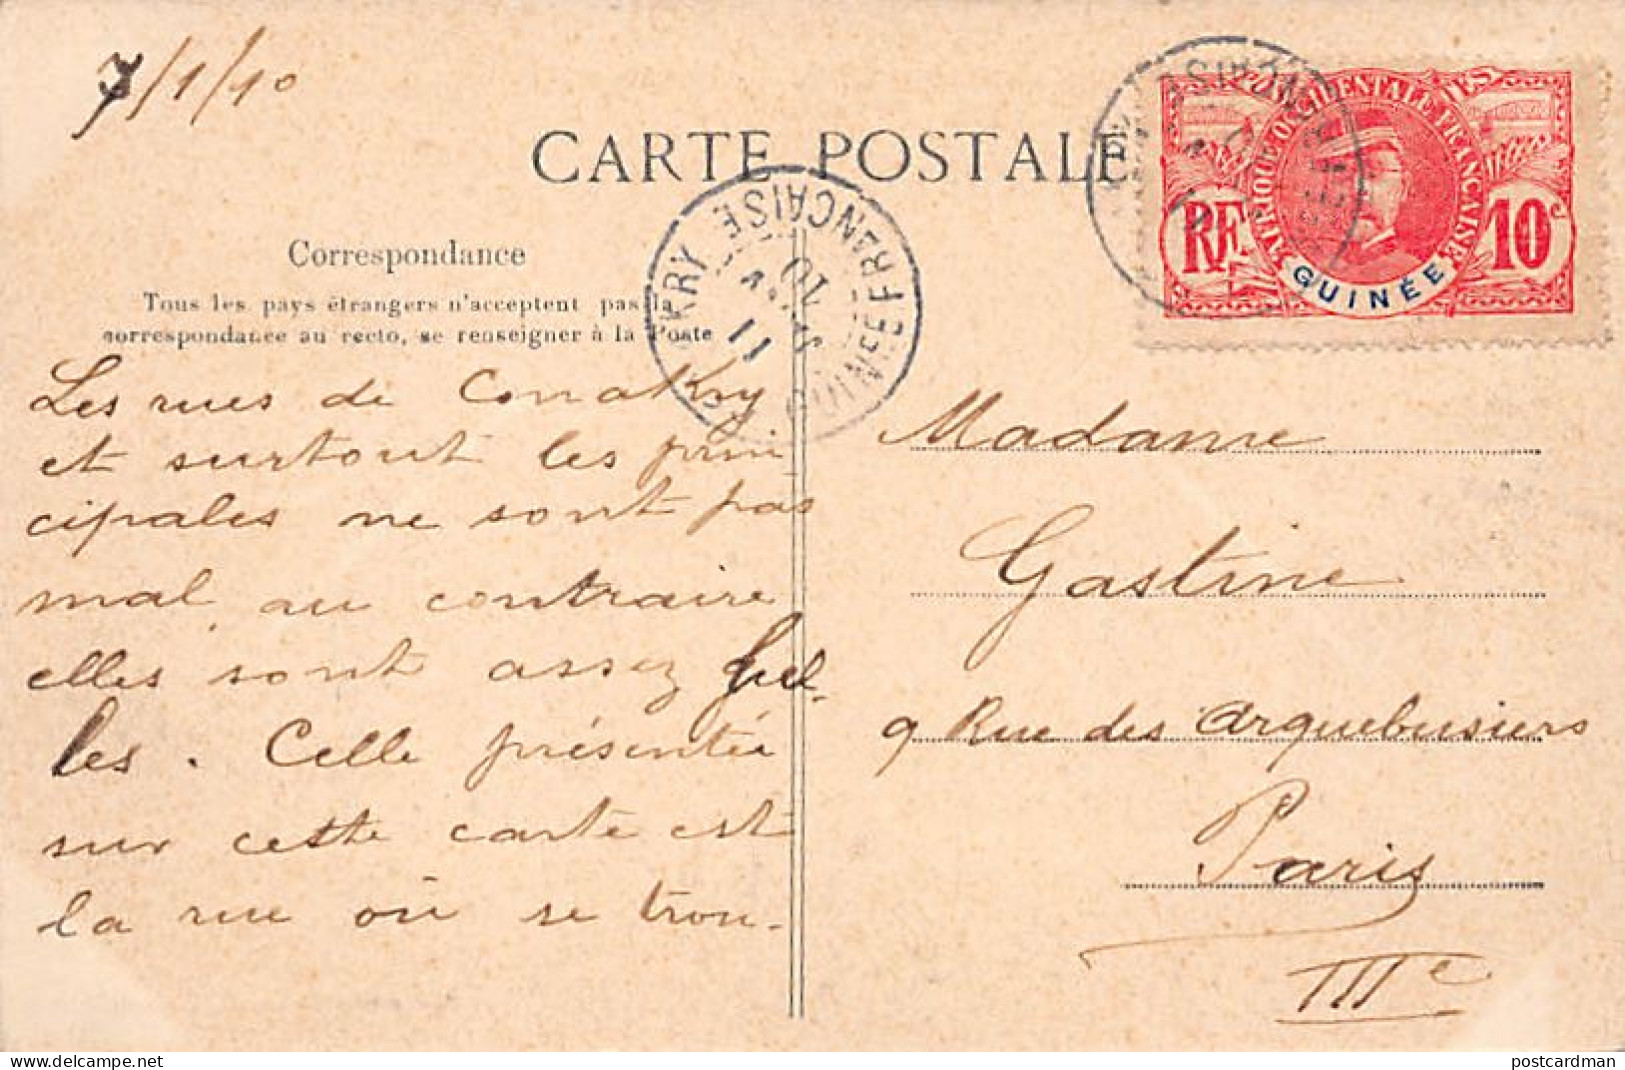 7/1/10
CARTE POSTALE
AFRIQUE OCCIDENTALE FRANÇAISE
RF
10c
GUINÉE
KRY
GUINÉE FRANÇAISE
11
10
Correspondance
Tous les pays étrangers n'acceptent pas la
correspondance au recto, se renseigner à la Poste
Les rues de Conakry
et surtout les prin-
cipales ne sont pas
mal au contraire
elles sont assez bel-
les. Celle présentée
sur cette carte est
la rue où se trou-
Madame
Gastine
9 Rue des Arquebusiers
Paris
IIIe
Delcampe.net
postcardman